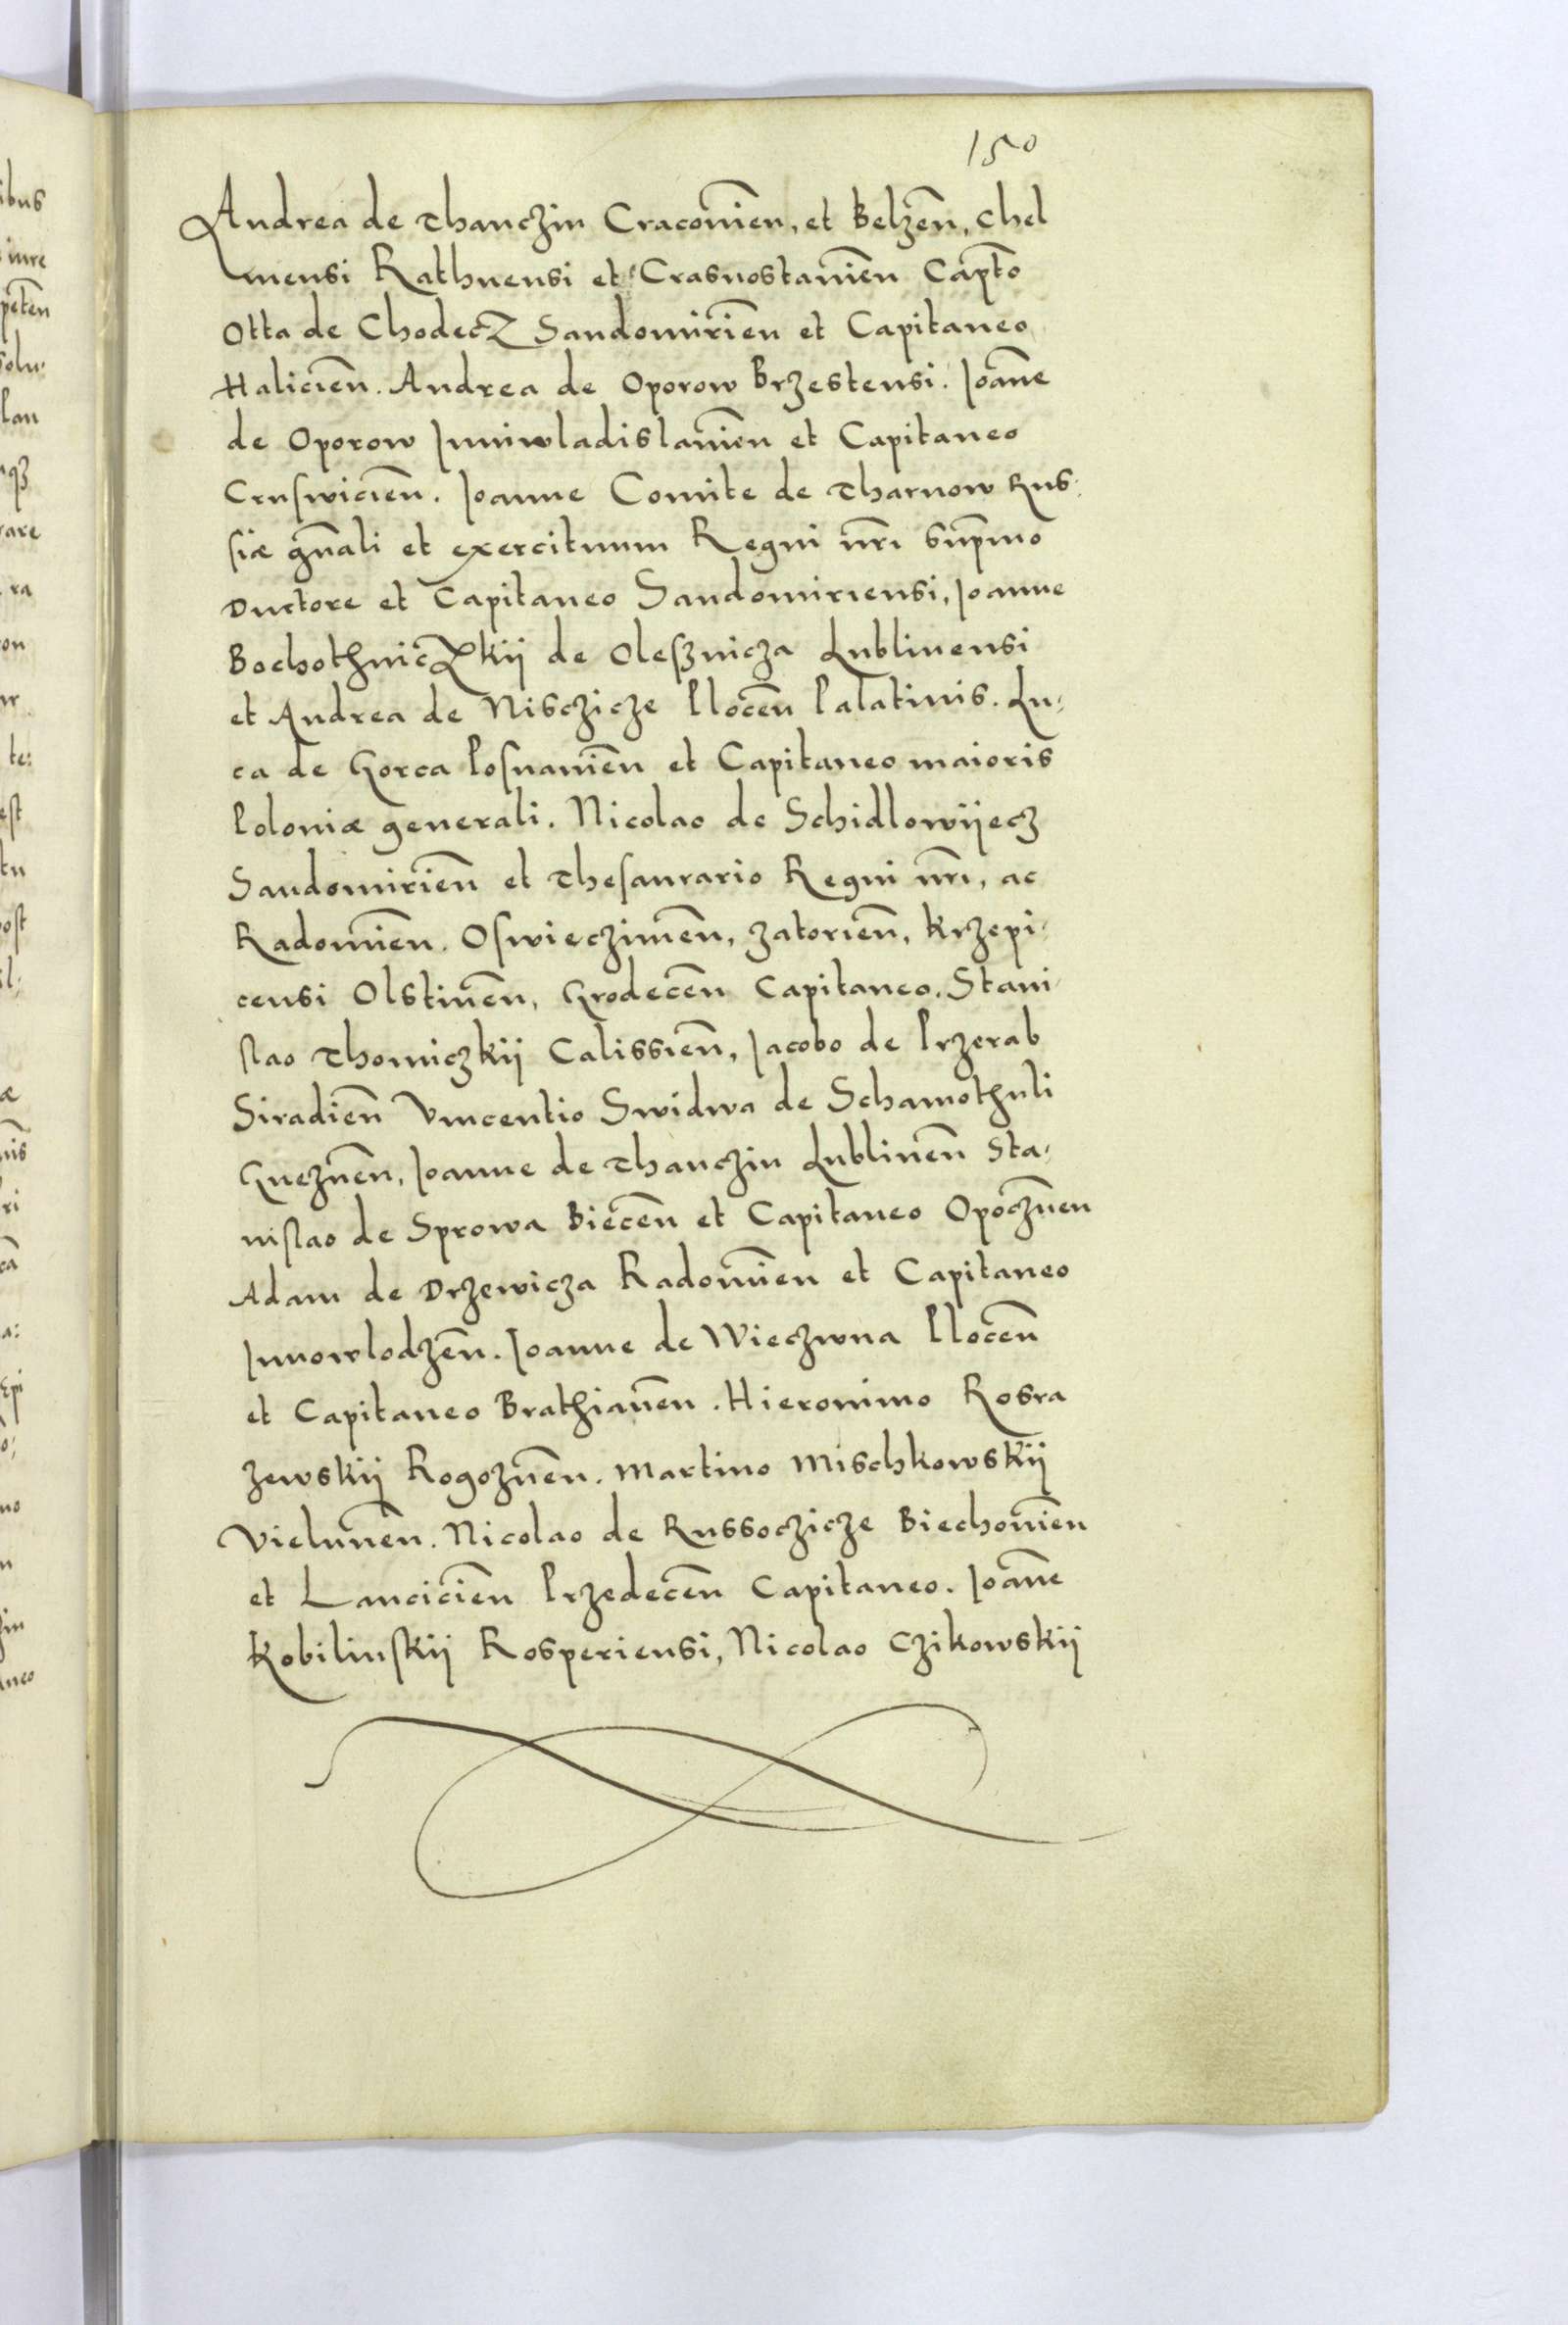 150
Andrea de Thanczin Cracovieñ, et Belzeñ, Chel
mensi Rathnensi et Crasnostavieñ Capto
Otta de Chodecz Sandomirieñ et Capitaneo
Halicieñ. Andrea de Oporow Brzestensi. Joãne
de Oporow Juniwladislavieñ et Capitaneo
Cruswicieñ. Joanne Comite de Tharnow Rus:
siæ gñali et exercituum Regni nr̃i sup̃mo
Ductore et Capitaneo Sandomiriensi, Joanne
Bochothniczkij de Oleſznicza Lublinensi
et Andrea de Nisczicze Ploceñ Palatinis. Lu,
ca de Gorca Poſnanieñ et Capitaneo maioris
Poloniæ generali. Nicolao de Schidlowijecz
Sandomirieñ et Theſaurario Regni nr̃i, ac
Radomieñ. Oſwieczimeñ, Zatorieñ, Krzepi,
censi Olstineñ, Grodeceñ Capitaneo. Stani
ſlao Thomiczkij Calissieñ, Jacobo de Przerab
Siradieñ Vincentio Swidwa de Schamothuli
Gnezneñ, Joanne de Thanczin Lublineñ Sta,
niſlao de Sprowa Bieceñ et Capitaneo Opoczneñ
Adam de Drzewicza Radomieñ et Capitaneo
Jnnowlodzeñ. Joanne de Wieczwna Ploceñ
et Capitaneo Brathianeñ. Hieronimo Rosra
zewskij Rogozneñ. Martino Mischkowskij
Vieluneñ. Nicolao de Russoczicze Biechovieñ
et Lancicieñ Przedeceñ Capitaneo. Joãne
Kobilinſkij Rosperiensi, Nicolao Czikowskij